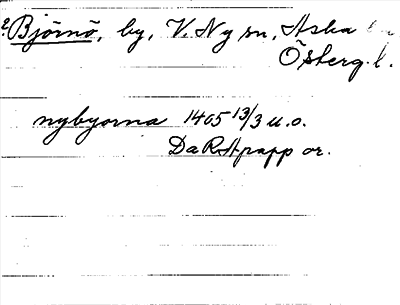 ? Björnö, by, V. Ny sn, Aska
Österg. l.
nybyorna 1405 13/3 u.o.
DaRA papp or.